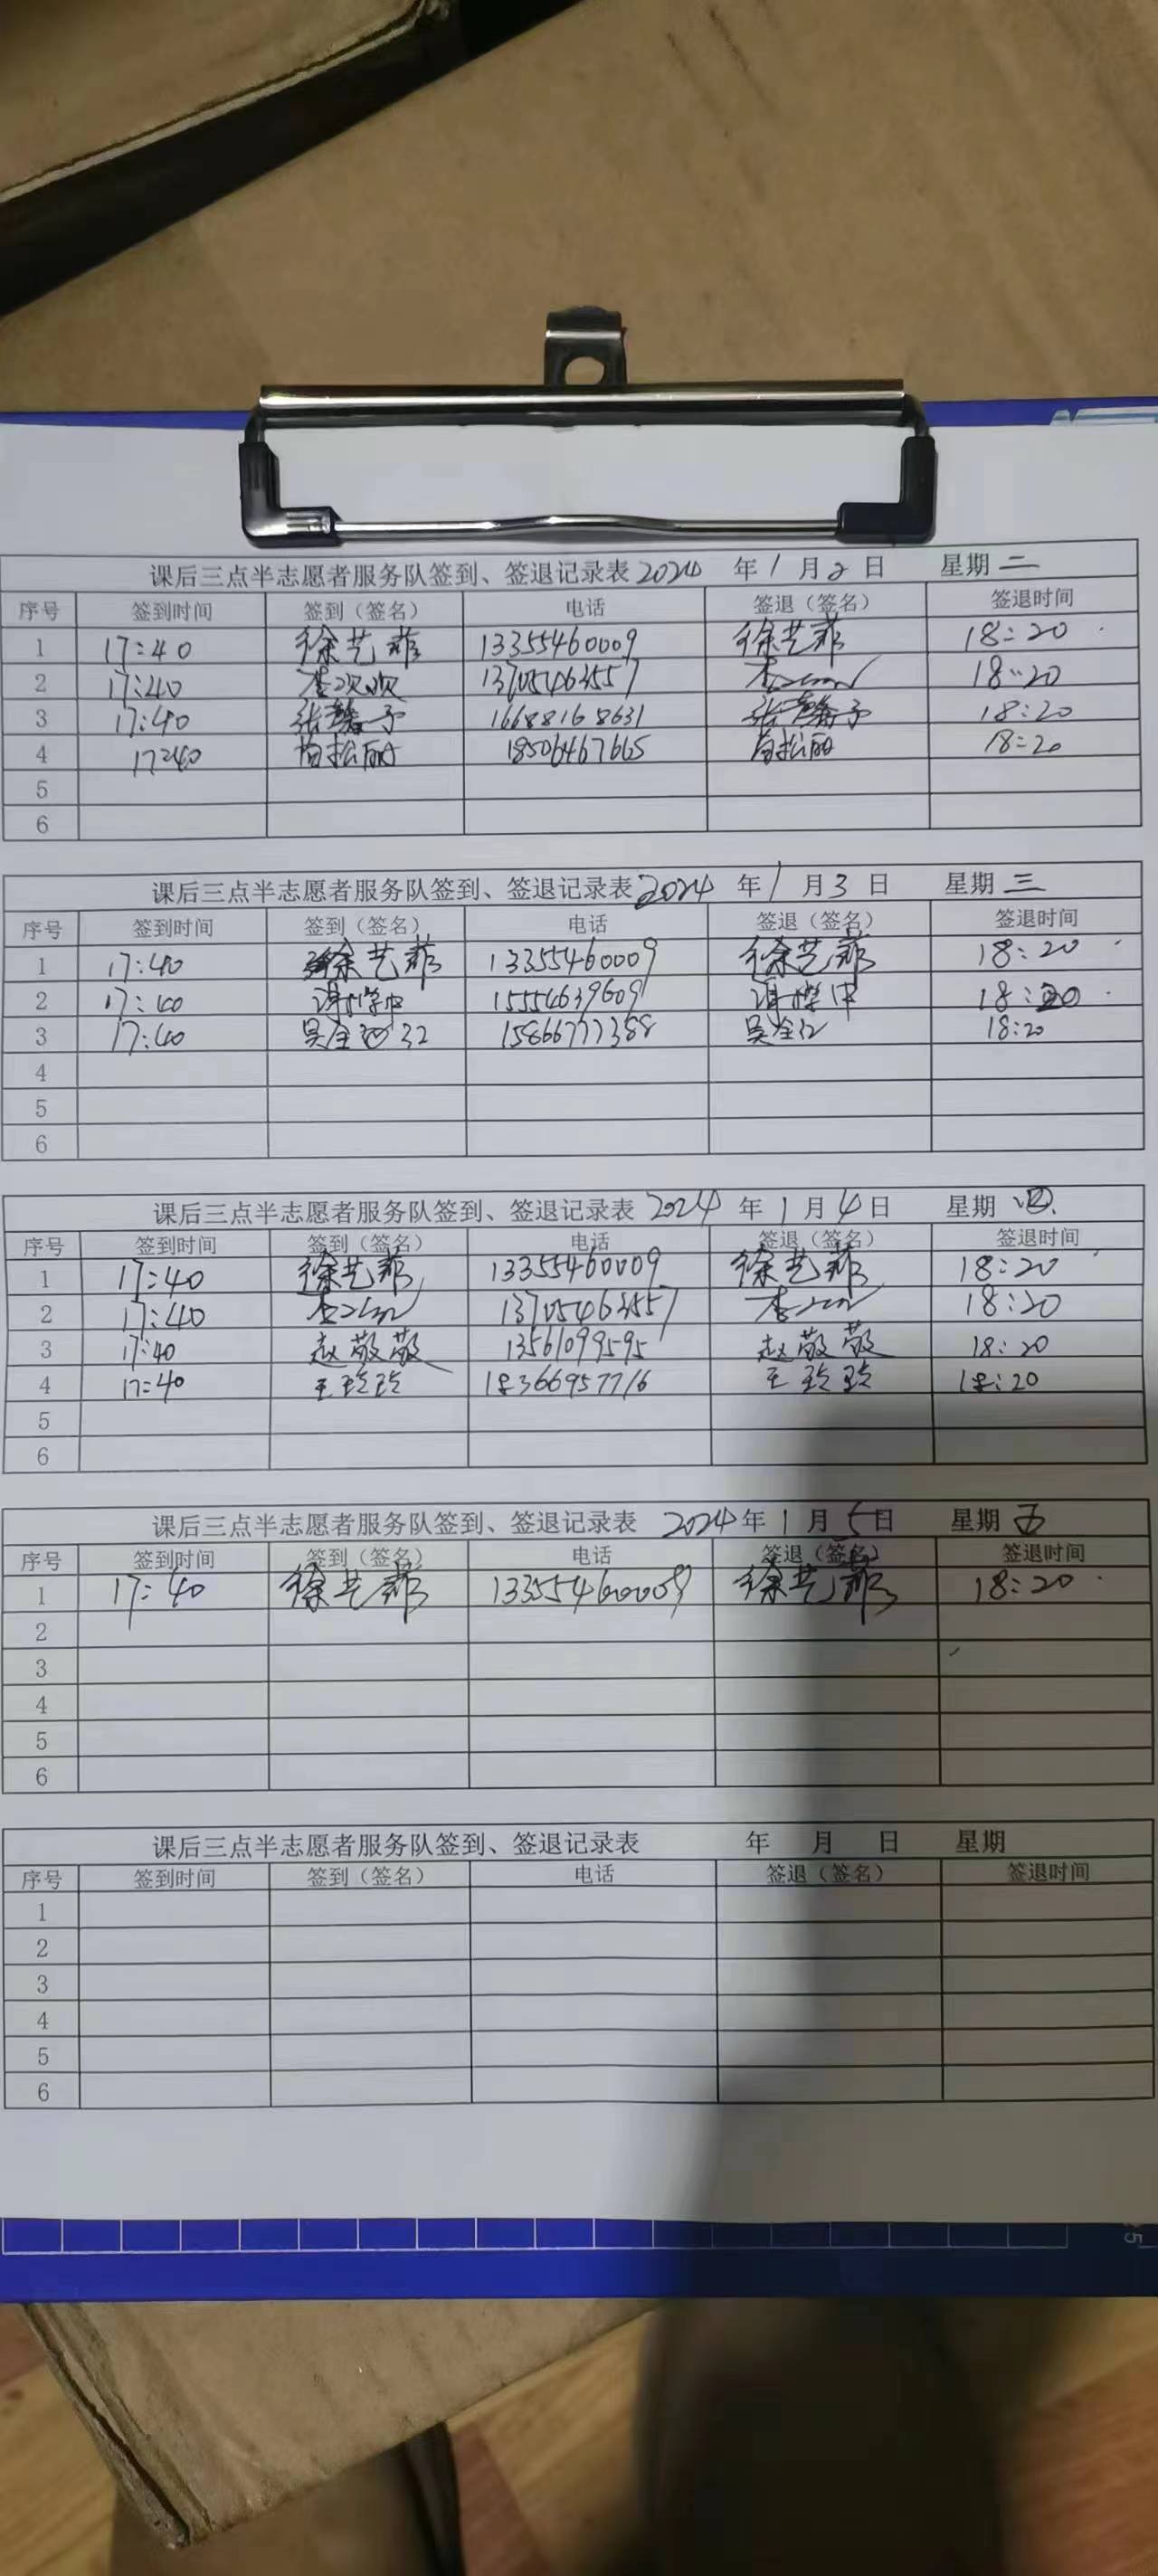 课后三点半志愿者服务队签到、签退记录表 2024 年 1 月 2 日 星期 二
序号 签到时间 签到（签名） 电话 签退（签名） 签退时间
1 17:40 徐艺菲 13355460009 徐艺菲 18:20
2 17:40 李欢欢 13705463557 李 18:20
3 17:40 张馨予 16688168631 张馨予 18:20
4 17:40 松丽 18506467665 松丽 18:20
5
6
课后三点半志愿者服务队签到、签退记录表 2024 年 1 月 3 日 星期 三
序号 签到时间 签到（签名） 电话 签退（签名） 签退时间
1 17:40 徐艺菲 13355460009 徐艺菲 18:20
2 17:40 15554639609 18:20
3 17:40 吴全红 15866777388 吴全红 18:20
4
5
6
课后三点半志愿者服务队签到、签退记录表 2024 年 1 月 4 日 星期 四
序号 签到时间 签到（签名） 电话 签退（签名） 签退时间
1 17:40 徐艺菲 13355460009 徐艺菲 18:20
2 17:40 李 13705463557 李 18:20
3 17:40 赵敬敬 13561099595 赵敬敬 18:20
4 17:40 王玲玲 18366957716 王玲玲 18:20
5
6
课后三点半志愿者服务队签到、签退记录表 2024 年 1 月 5 日 星期 五
序号 签到时间 签到（签名） 电话 签退（签名） 签退时间
1 17:40 徐艺菲 13355460009 徐艺菲 18:20
2
3
4
5
6
课后三点半志愿者服务队签到、签退记录表 年 月 日 星期
序号 签到时间 签到（签名） 电话 签退（签名） 签退时间
1
2
3
4
5
6